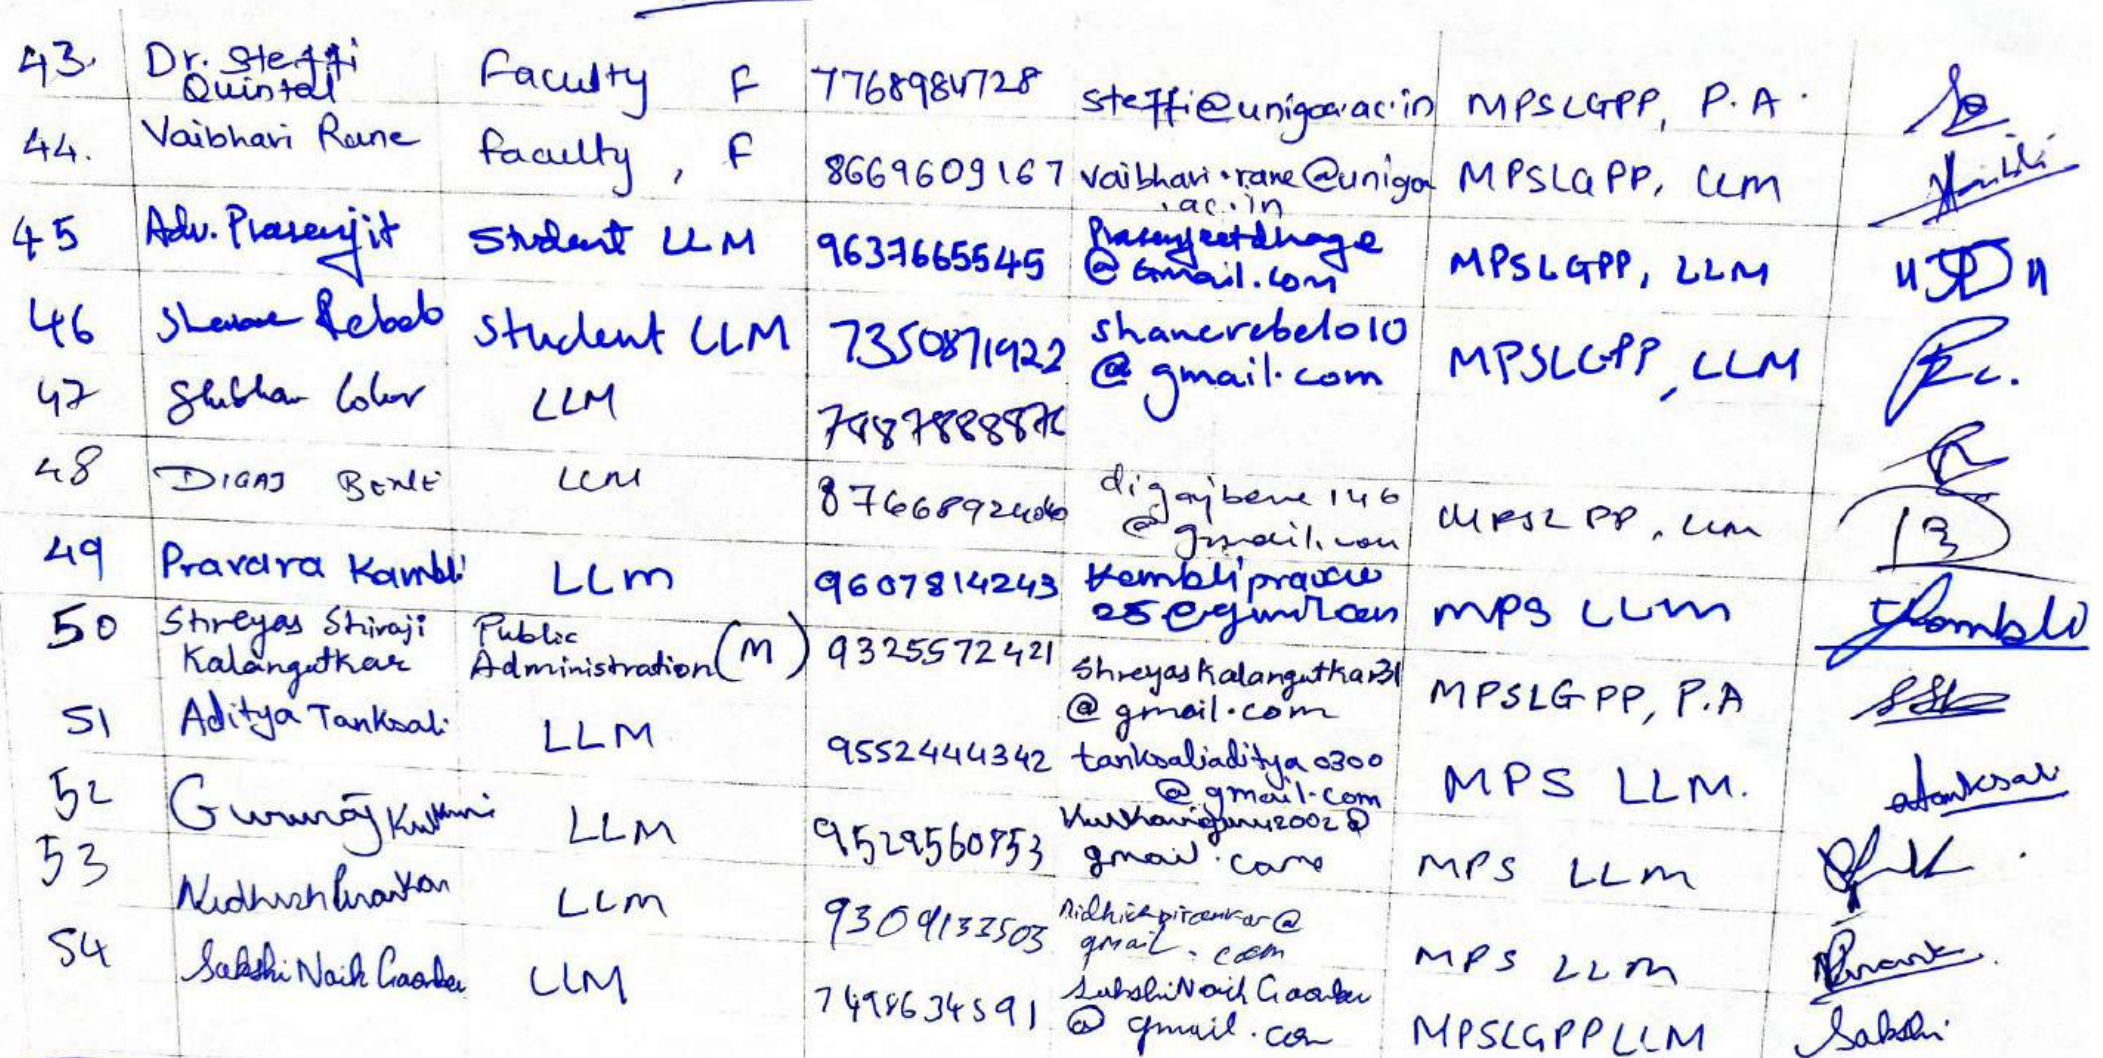 43. Dr. Steffi Quintal Faculty F 7768984728 steffi@unigoa.ac.in MPSLGPP, P.A.
44. Vaibhavi Rane faculty, F 8669609167 vaibhavi.rane@unigoa.ac.in MPSLGPP, LLM
45 Adv. Prasenjit Student LLM 9637665545 Prasenjeetdhage@Gmail.com MPSLGPP, LLM
46 Shane Rebelo Student LLM 7350871922 shanerebelo10@gmail.com MPSLGPP, LLM
47 LLM
48 DIGAJ BENE LLM digajbene146@gmail.com LLM
49 Pravara Kambli LLM 9607814243 MPS LLM Kambli
50 Shreyas Shivaji Kalangutkar Public Administration (M) 9325572421 Shreyaskalangutkar31@gmail.com MPSLGPP, P.A
51 Aditya Tanksali LLM 9552444342 tanksaliaditya0300@gmail.com MPS LLM. atanksali
52 Gururaj Kulkarni LLM 9529560853 gmail.com MPS LLM
53 LLM 9309133503 nidhishpirankar@gmail.com MPS LLM
54 Sakshi Naik Gaonker LLM 7498634591 SakshiNaikGaonker@gmail.com MPSLGPP LLM Sakshi